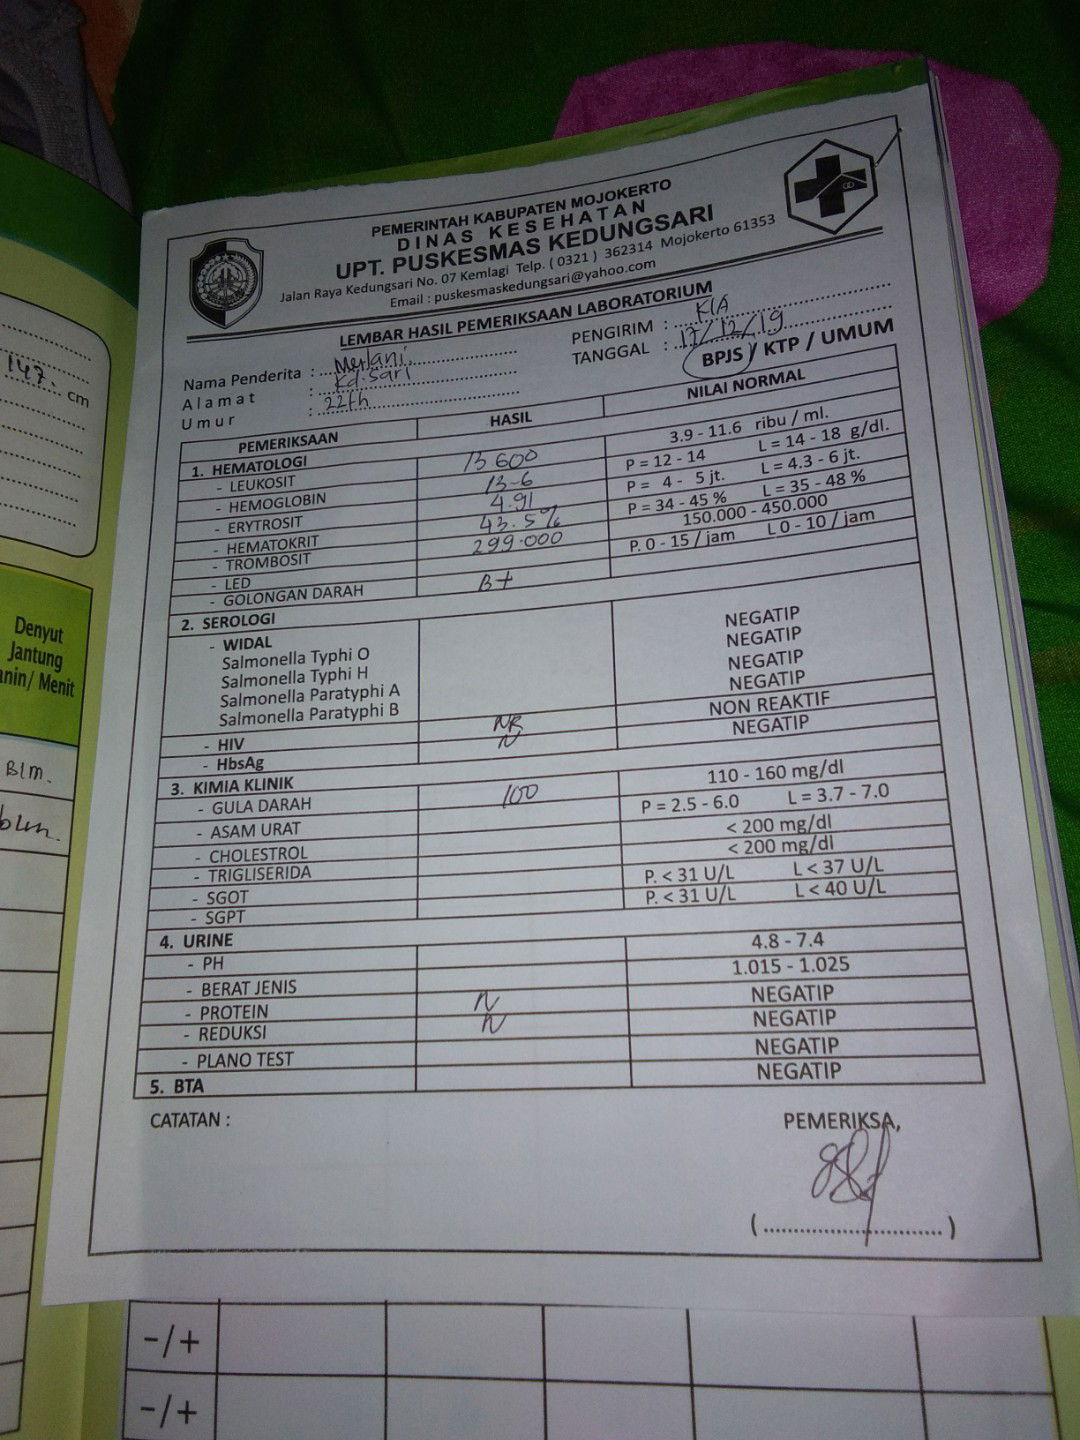 PEMERINTAH KABUPATEN MOJOKERTO
DINAS KESEHATAN
UPT. PUSKESMAS KEDUNGSARI
Jalan Raya Kedungsari No. 07 Kemlagi Telp. ( 0321 ) 362314 Mojokerto 61353
Email : puskesmaskedungsari@yahoo.com
LEMBAR HASIL PEMERIKSAAN LABORATORIUM
Nama Penderita : Merlani PENGIRIM : KIA
Alamat : Kd. Sari TANGGAL : 17/12/19
Umur : 22th BPJS / KTP / UMUM
PEMERIKSAAN HASIL NILAI NORMAL
1. HEMATOLOGI
- LEUKOSIT 13 600 3.9 - 11.6 ribu / ml.
- HEMOGLOBIN 13-6 P = 12 - 14 L = 14 - 18 g/dl.
- ERYTROSIT 4.91 P = 4 - 5 jt. L = 4.3 - 6 jt.
- HEMATOKRIT 43.5% P = 34 - 45 % L = 35 - 48 %
- TROMBOSIT 299.000 150.000 - 450.000
- LED P. 0 - 15 / jam L 0 - 10 / jam
- GOLONGAN DARAH B+
2. SEROLOGI
- WIDAL
Salmonella Typhi O NEGATIP
Salmonella Typhi H NEGATIP
Salmonella Paratyphi A NEGATIP
Salmonella Paratyphi B NEGATIP
- HIV NR NON REAKTIF
- HbsAg N NEGATIP
3. KIMIA KLINIK
- GULA DARAH 100 110 - 160 mg/dl
- ASAM URAT P = 2.5 - 6.0 L = 3.7 - 7.0
- CHOLESTROL < 200 mg/dl
- TRIGLISERIDA < 200 mg/dl
- SGOT P. < 31 U/L L < 37 U/L
- SGPT P. < 31 U/L L < 40 U/L
4. URINE
- PH 4.8 - 7.4
- BERAT JENIS 1.015 - 1.025
- PROTEIN N NEGATIP
- REDUKSI N NEGATIP
- PLANO TEST NEGATIP
5. BTA NEGATIP
CATATAN :
PEMERIKSA,
147. cm
Denyut
Jantung
anin/ Menit
Blm.
-/+
-/+